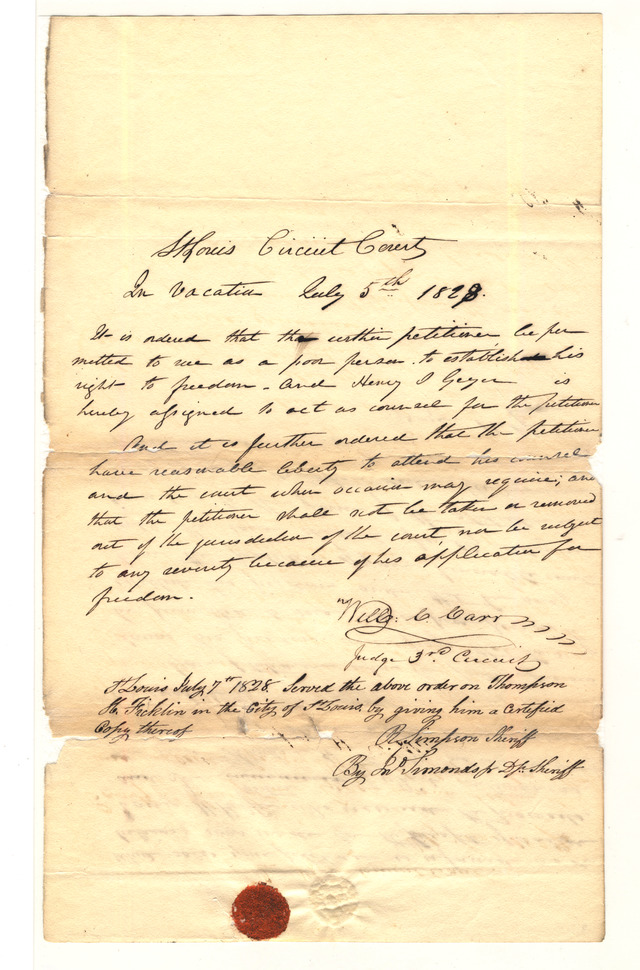 St Louis Circuit Court
In Vacation July 5th 1828.
It is ordered that the within petitioner be per
mitted to sue as a poor person to establish his
right to freedom. And Henry S Geyer is
hereby assigned to act as counsel for the petitioner
And it is further ordered that the petitioner
have reasonable liberty to attend his counsel
and the court when occasion may require; and
that the petitioner shall not be taken or removed
out of the jurisdiction of the court, nor be subject
to any severity because of his application for
freedom.
Will: C. Carr
Judge 3rd Circuit
St Louis July 7th 1828. Served the above order on Thompson
H. Ficklin in the City of St Louis by giving him a Certified
Copy thereof
R. Simpson Sheriff
By Jno Simonds jr Dy. Sheriff